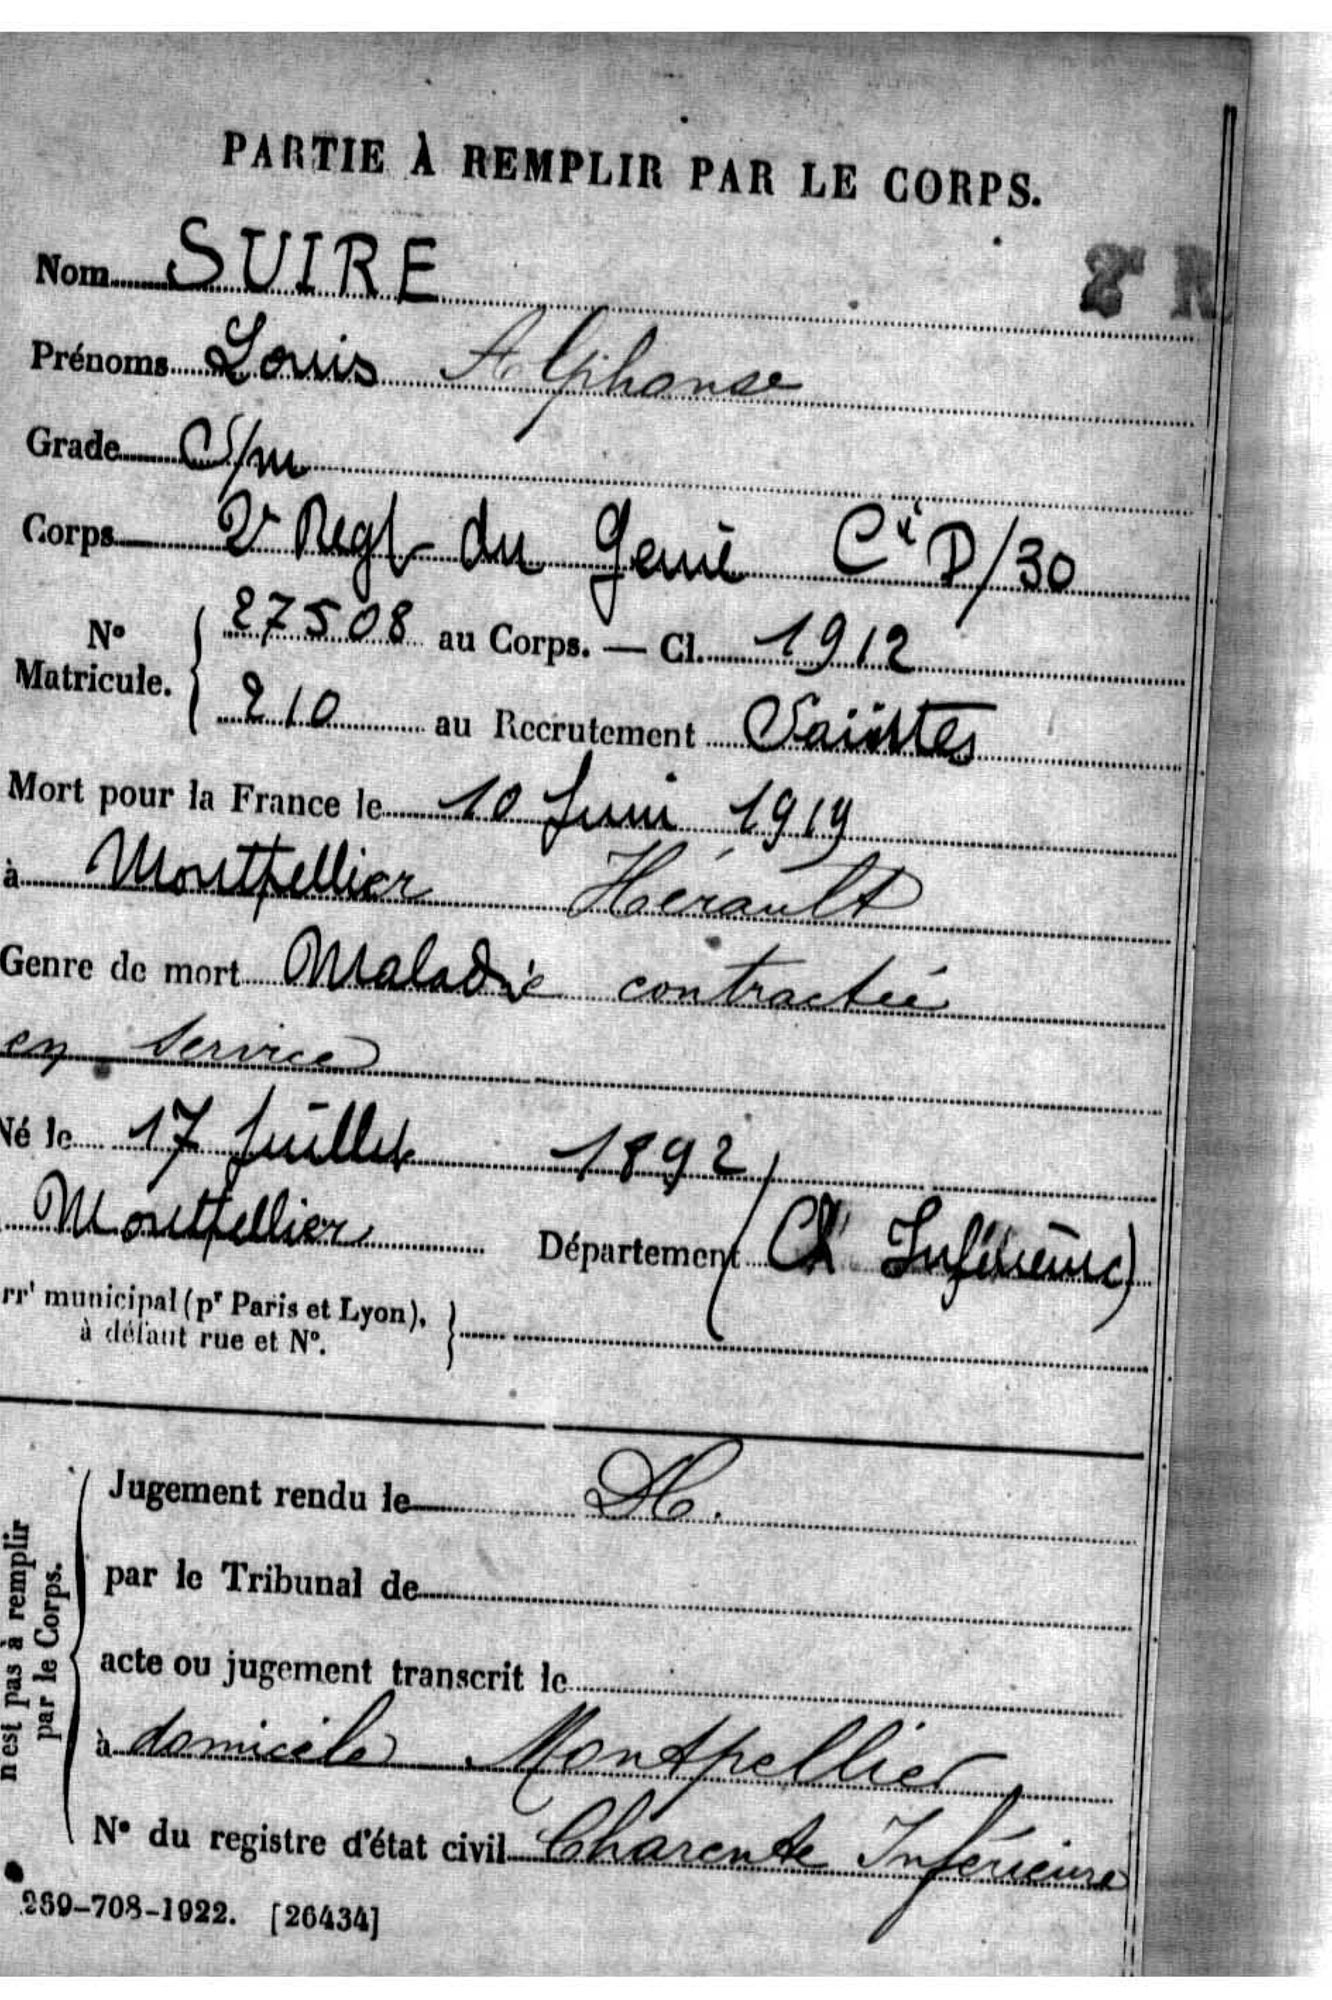 PARTIE À REMPLIR PAR LE CORPS.
2e R
Nom SUIRE
Prénoms Louis Alphonse
Grade S/m
Corps 2e Regt du Genie Cie D/30
No Matricule. { 27508 au Corps. — Cl. 1912
210 au Recrutement Saintes
Mort pour la France le 10 Juin 1919
à Montpellier Hérault
Genre de mort Maladie contractée
en service
Né le 17 Juillet 1892
Montpellier Département (Ch Inférieure)
rrt municipal (pr Paris et Lyon),
à défaut rue et No.
n'est pas à remplir
par le Corps.
Jugement rendu le
par le Tribunal de
acte ou jugement transcrit le
à domicile Montpellier
No du registre d'état civil Charente Inférieure
269-708-1922. [26434]